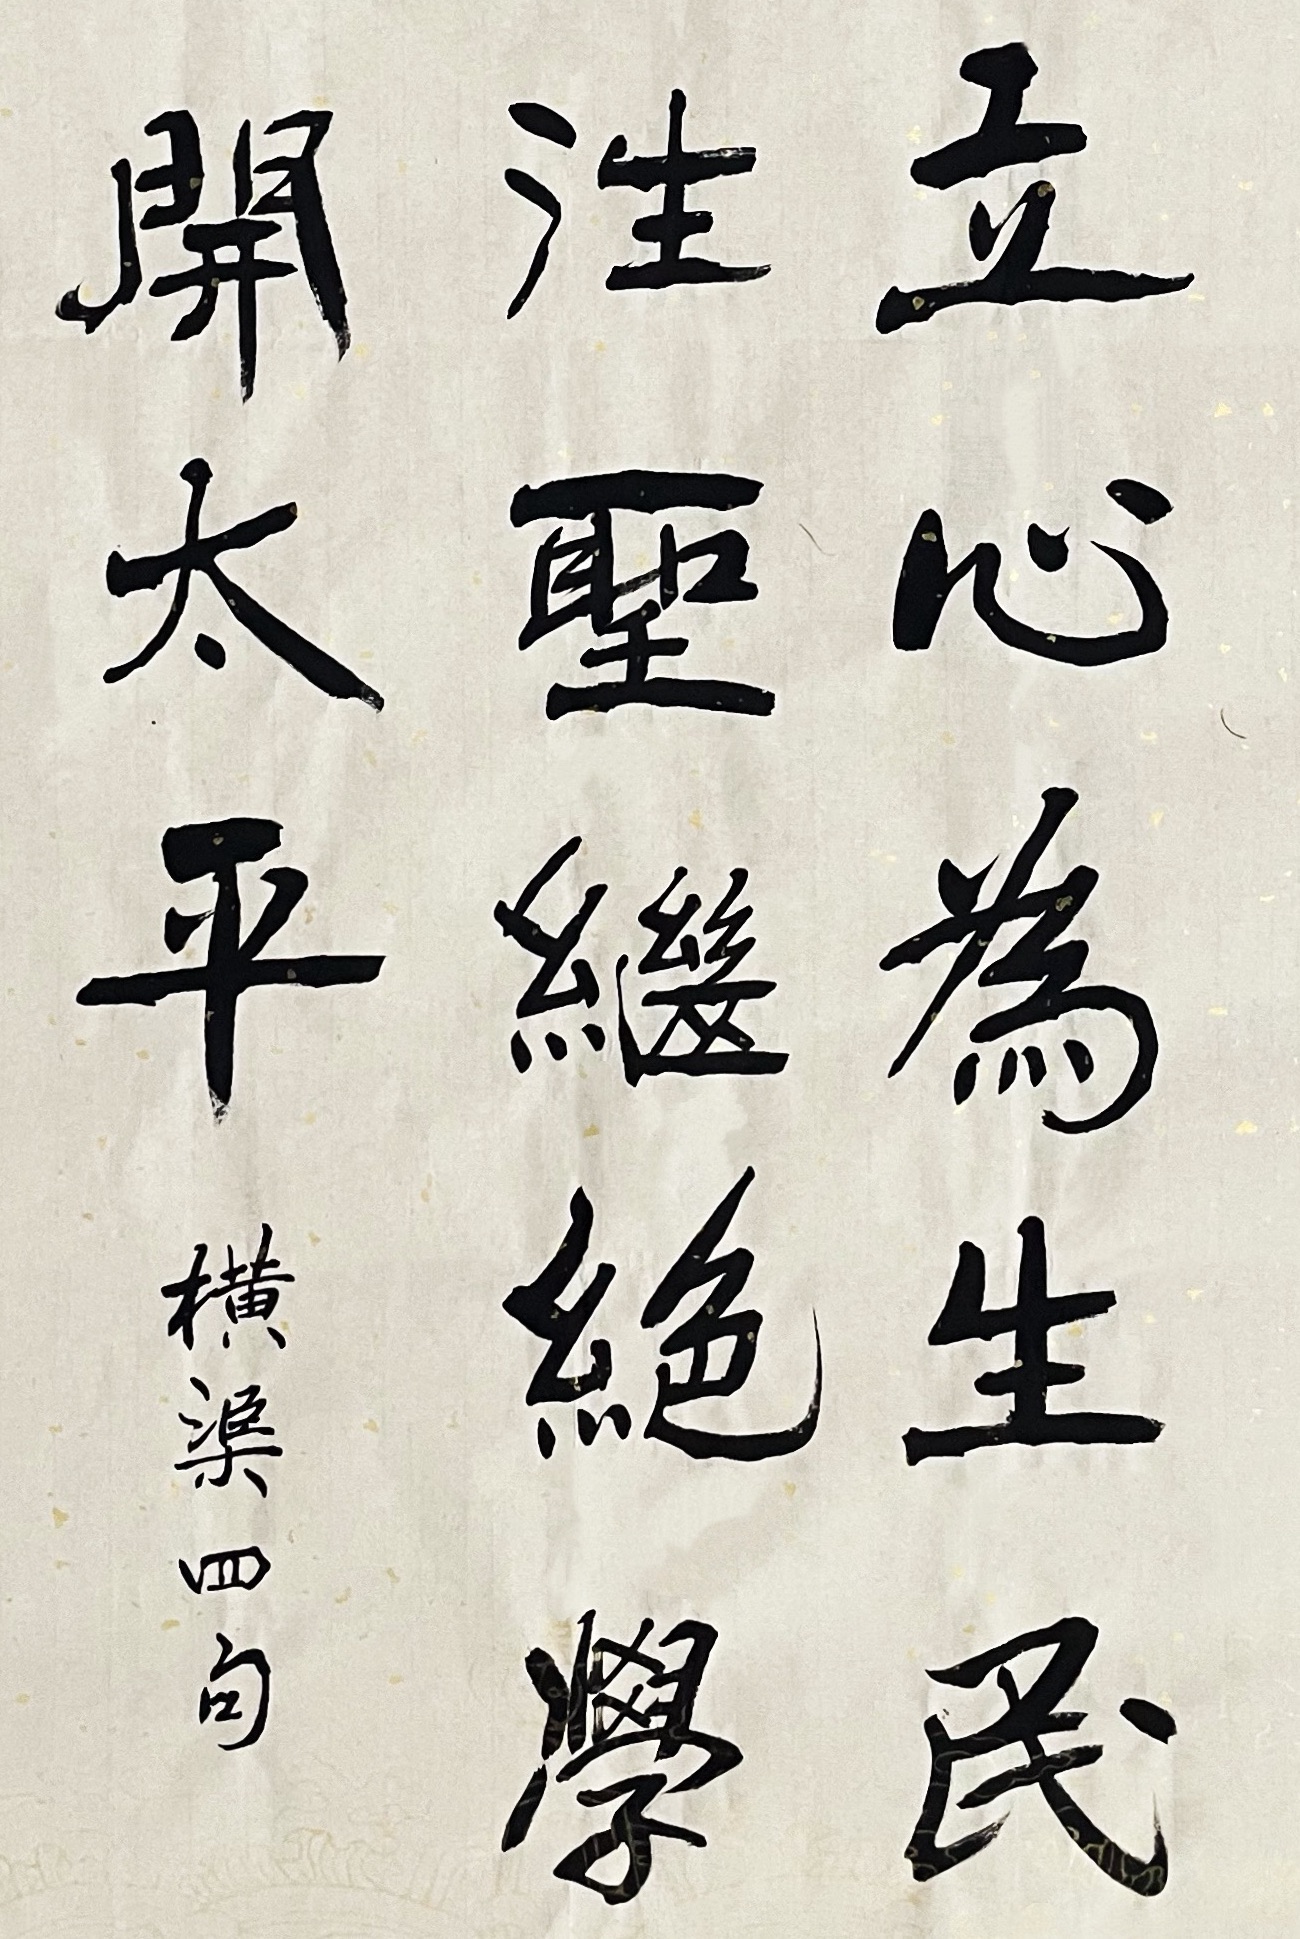 立心為生民
往聖繼絕學
開太平
横渠四句